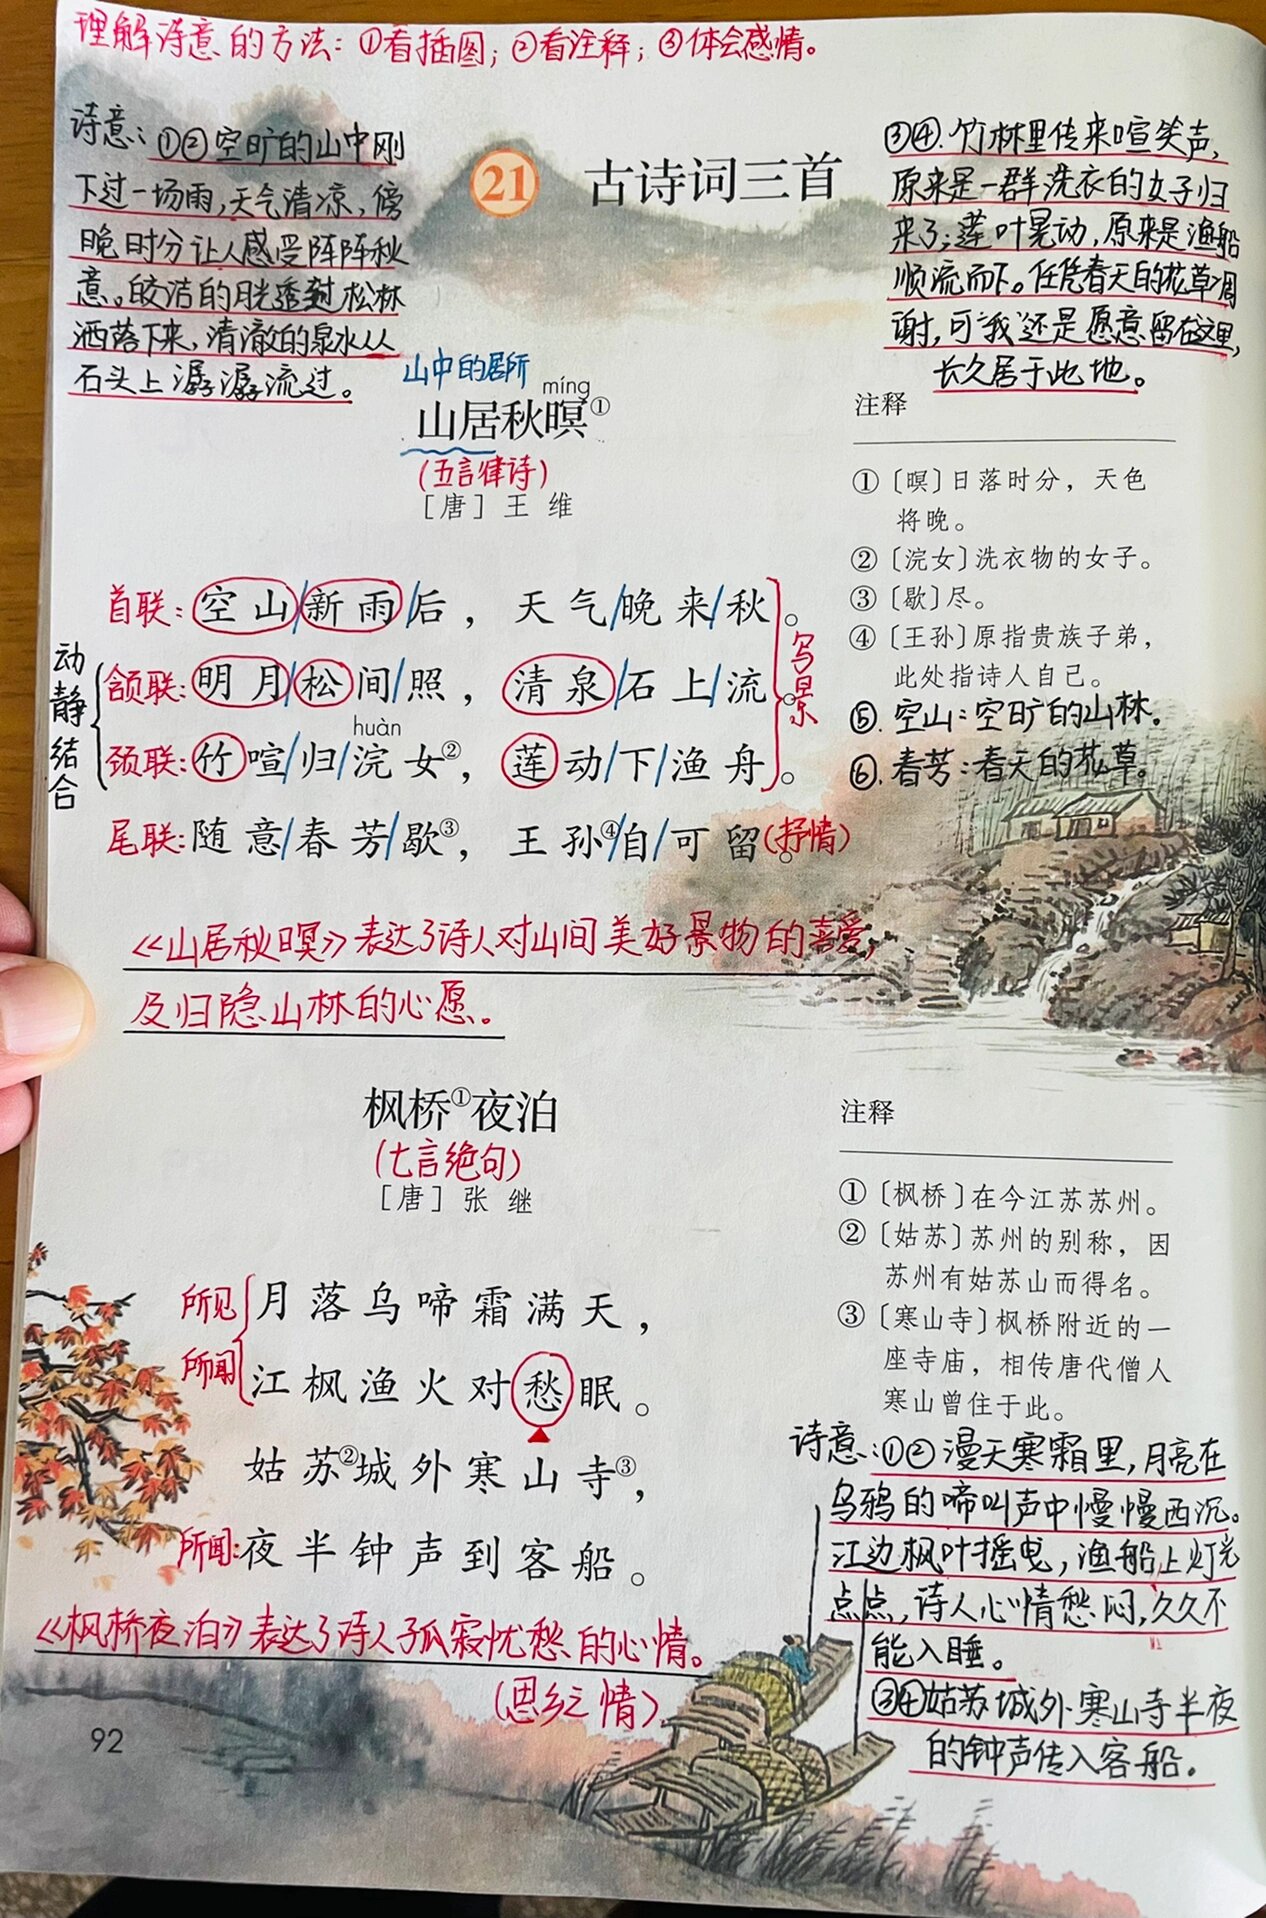 理解诗意的方法：①看插图；②看注释；③体会感情。
诗意：①②空旷的山中刚
下过一场雨，天气清凉，傍
晚时分让人感受阵阵秋
意。皎洁的月光透过松林
洒落下来，清澈的泉水从
石头上潺潺流过。
21 古诗词三首
③④.竹林里传来喧笑声，
原来是一群洗衣的女子归
来了；莲叶晃动，原来是渔船
顺流而下。任凭春天的花草凋
谢，可“我”还是愿意留在这里，
长久居于此地。
山中的居所
míng
山居秋暝①
（五言律诗）
［唐］王维
首联：空山/新雨/后，天气/晚来/秋。
颔联：明月松间/照，清泉/石上/流。
huàn
颈联：竹喧/归/浣女②，莲动/下/渔舟。
尾联：随意/春芳/歇③，王孙④/自/可留。（抒情）
动静结合
写景
注释
①〔暝〕日落时分，天色
将晚。
②〔浣女〕洗衣物的女子。
③〔歇〕尽。
④〔王孙〕原指贵族子弟，
此处指诗人自己。
⑤.空山：空旷的山林。
⑥.春芳：春天的花草。
《山居秋暝》表达了诗人对山间美好景物的喜爱，
及归隐山林的心愿。
枫桥①夜泊
（七言绝句）
［唐］张继
所见 月落乌啼霜满天，
所闻 江枫渔火对愁眠。
姑苏②城外寒山寺③，
所闻：夜半钟声到客船。
《枫桥夜泊》表达了诗人孤寂忧愁的心情。
（思乡之情）
注释
①〔枫桥〕在今江苏苏州。
②〔姑苏〕苏州的别称，因
苏州有姑苏山而得名。
③〔寒山寺〕枫桥附近的一
座寺庙，相传唐代僧人
寒山曾住于此。
诗意：①②漫天寒霜里，月亮在
乌鸦的啼叫声中慢慢西沉。
江边枫叶摇曳，渔船上灯光
点点，诗人心情愁闷，久久不
能入睡。
③④姑苏城外寒山寺半夜
的钟声传入客船。
92